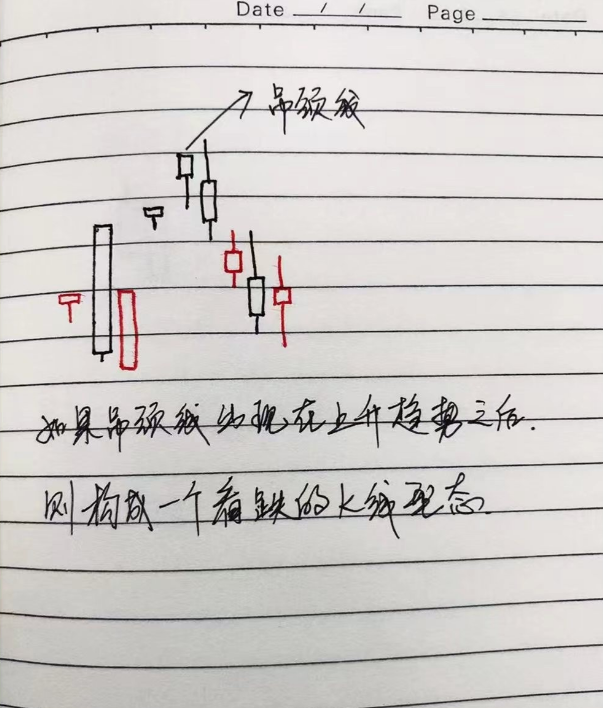 Date / / Page
吊颈线
如果吊颈线出现在上升趋势之后.
则构成一个看跌的K线型态.